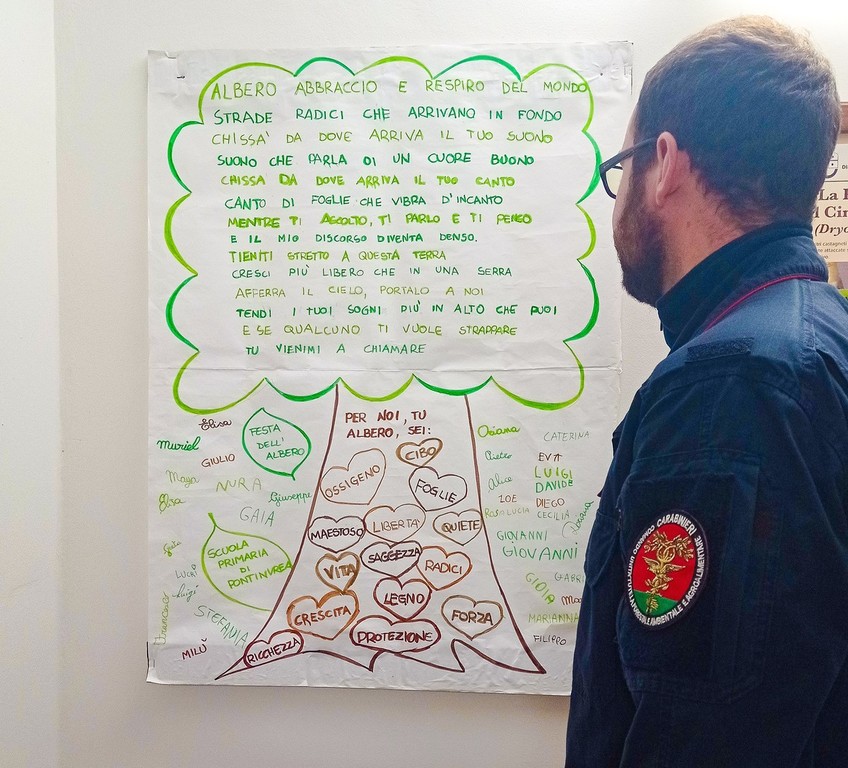 ALBERO ABBRACCIO E RESPIRO DEL MONDO
STRADE RADICI CHE ARRIVANO IN FONDO
CHISSA' DA DOVE ARRIVA IL TUO SUONO
SUONO CHE PARLA DI UN CUORE BUONO
CHISSA DA DOVE ARRIVA IL TUO CANTO
CANTO DI FOGLIE CHE VIBRA D'INCANTO
MENTRE TI ASCOLTO, TI PARLO E TI PENSO
E IL MIO DISCORSO DIVENTA DENSO.
TIENITI STRETTO A QUESTA TERRA
CRESCI PIÙ LIBERO CHE IN UNA SERRA
AFFERRA IL CIELO, PORTALO A NOI
TENDI I TUOI SOGNI PIU' IN ALTO CHE PUOI
E SE QUALCUNO TI VUOLE STRAPPARE
TU VIENIMI A CHIAMARE
PER NOI, TU
ALBERO, SEI:
CIBO
OSSIGENO
FOGLIE
MAESTOSO
LIBERTA'
QUIETE
SAGGEZZA
VITA
RADICI
LEGNO
CRESCITA
FORZA
PROTEZIONE
RICCHEZZA
Elisa
Muriel
FESTA
DELL'
ALBERO
GIULIO
Maya
NURA
Elsa
Giuseppe
GAIA
SCUOLA
PRIMARIA
DI
PONTINVREA
Luigi
Francesco
STEFANIA
MILÙ
Oriana
CATERINA
Pietro
EVA
Alice
LUIGI
DAVIDE
ZOE
DIEGO
ROSALUCIA
CECILIA
GIOVANNI
GIOVANNI
GABRI
GIOIA
MARIANNA
FILIPPO
COMANDO CARABINIERI
La
(Dryo